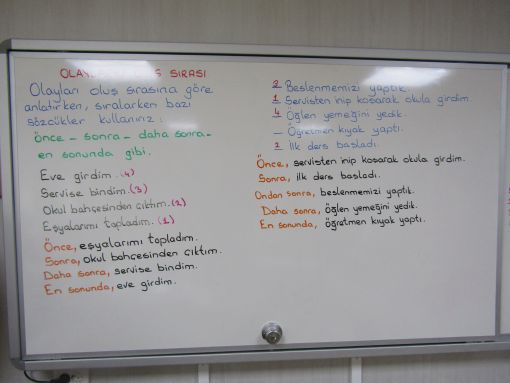 OLAYLARIN OLUŞ SIRASI
Olayları oluş sırasına göre
anlatırken, sıralarken bazı
sözcükler kullanırız:
önce - sonra - daha sonra -
en sonunda gibi.
Eve girdim. (4)
Servise bindim. (3)
Okul bahçesinden çıktım. (2)
Eşyalarımı topladım. (1)
Önce, eşyalarımı topladım.
Sonra, okul bahçesinden çıktım.
Daha sonra, servise bindim.
En sonunda, eve girdim.
Beslenmemizi yaptık.
1 Servisten inip koşarak okula girdim.
4 Öğlen yemeğini yedik.
- Öğretmen kıyak yaptı.
2 İlk ders başladı.
Önce, servisten inip koşarak okula girdim.
Sonra, ilk ders başladı.
Ondan sonra, beslenmemizi yaptık.
Daha sonra, öğlen yemeğini yedik.
En sonunda, öğretmen kıyak yaptı.